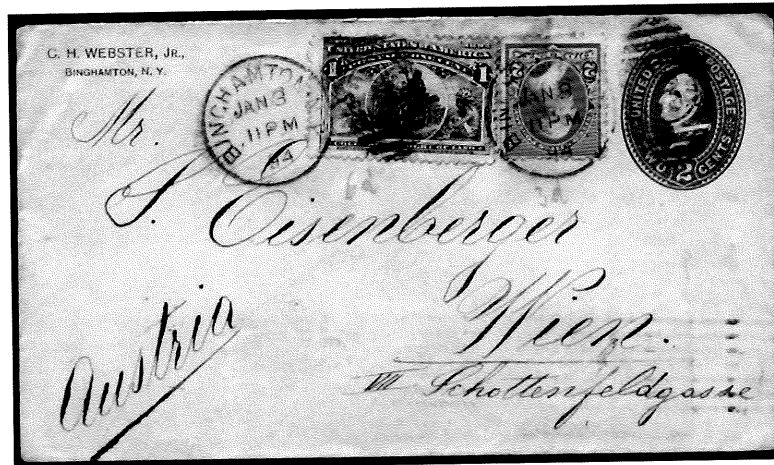 C. H. WEBSTER, JR.,
BINGHAMTON, N. Y.
BINGHAMTON, N.Y.
JAN 3
11 PM
94
UNITED STATES OF AMERICA
1 1
2 2
BIN
JAN 3
11 PM
94
UNITED STATES POSTAGE
TWO 2 CENTS
Mr.
Eisenberger
Wien.
VII Schottenfeldgasse
Austria